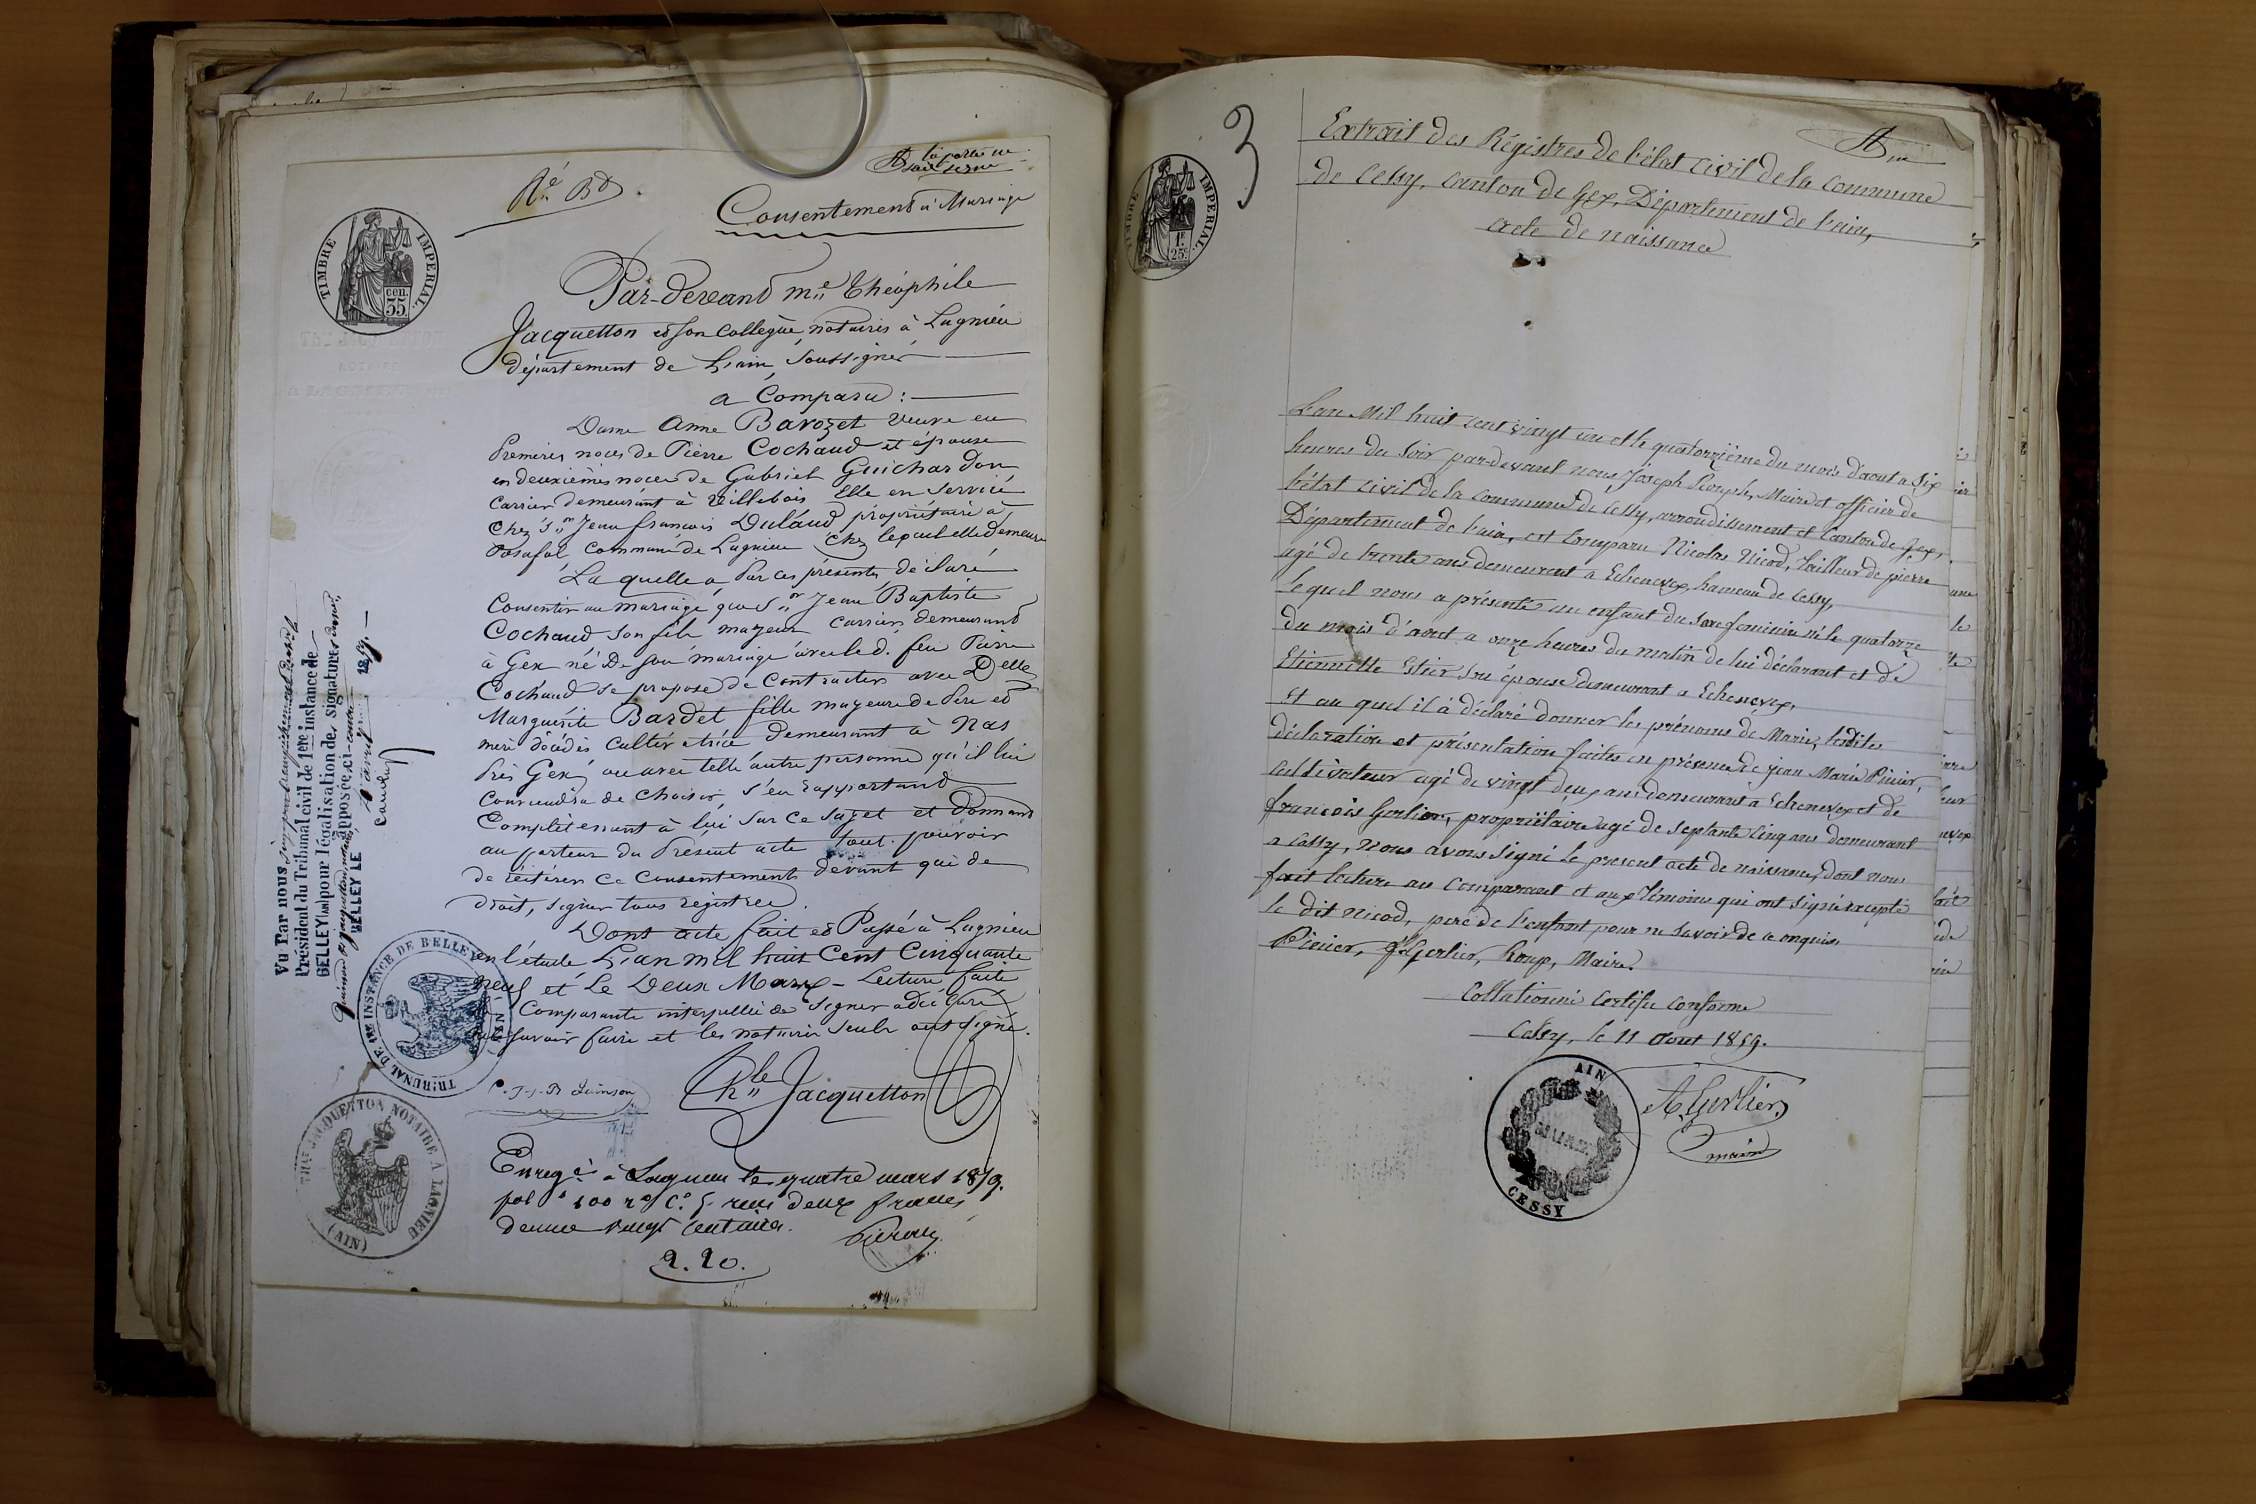 Consentement à Mariage
TIMBRE IMPERIAL.
cen.
55
Par-devant Me Théophile
Jacquetton et Son Collègue, notaires à Lagnieu
département de L'ain, Soussignés
a Comparu :
Dame Anne Bavozet Veuve en
Premières noces de Pierre Cochaud et épouse
en deuxièmes noces de Gabriel Guichardon
Carrier demeurant à Villebois Elle en Service
Chez Sr Jean françois Dulaud propriétaire à
Posafol Commune de Lagnieu Chez lequel elle demeure
La quelle a Par ces présentes déclaré
Consentir au mariage que Sr Jean Baptiste
Cochaud Son fils mayeur Carrier demeurant
à Gex né De Son mariage avec led. feu Pierre
Cochaud se propose de Contracter avec Delle
Marguerite Bardet fille mayeure de Père et
mère décédés Cultivatrice demeurant à Nas
Près Gex, ou avec telle autre personne qu'il lui
Conviendra de Choisir, s'en rapportant
Complètement à lui Sur Ce Sujet et Donnant
au porteur du Présent acte tout pouvoir
de réitérer Ce Consentement devant qui de
droit, signer tous registres.
Dont acte fait et Passé à Lagnieu
en l'étude L'an mil huit Cent Cinquante
neuf et Le Deux Mars - Lecture faite
Comparante interpellée de Signer a déclaré
Savoir faire et les notaires Seuls ont Signé.
Jacquetton
Enregé à Lagnieu le quatre mars 1859.
fol 100 ro C. 5 reçu deux francs
décime vingt centimes.
2. 20.
Vu Par nous
Président du Tribunal civil de 1ère instance de
BELLEY (an) pour légalisation de signatures
apposée ci-contre
BELLEY LE avril 1859.
TRIBUNAL DE 1RE INSTANCE DE BELLEY (AIN)
THLE JACQUETTON NOTAIRE A LAGNIEU
(AIN)
3
TIMBRE IMPERIAL.
1F
25c
Extrait des Régistres de l'état civil de la commune
de Cessy, canton de Gex, Département de l'ain,
acte de naissance
L'an Mil huit cent vingt un et le quatorzième du mois d'aout a Six
heures du Soir par-devant nous Joseph Roup, Maire et officier de
l'état civil de la commune de Cessy, arrondissement et Canton de Gex,
Département de l'ain, est Comparu Nicolas Nicod, tailleur de pierre
agé de trente ans demeurant a Echenevex, hameau de Cessy,
Lequel nous a présenté un enfant du Sexe feminin né le quatorze
du mois d'aout a onze heures du matin de lui déclarant et de
Etiennette Estier Son épouse demeurant a Echenevex,
Et au quel il à déclaré donner les prénoms de Marie, lesdites
déclaration et présentation faites en présence de jean Marie Pinier,
cultivateur agé de vingt deux ans demeurant a Echenevex et de
françois Gerlier, propriétaire agé de septante cinq ans demeurant
a Cessy, Nous avons Signé le present acte de naissance, dont nous
fait lecture au Comparant et aux témoins qui ont Signé excepté
le dit Nicod, pere de l'enfant pour ne savoir de ce enquis
Pinier, Gerlier, Roup, Maire.
Collationné Certifié Conforme
Cessy, le 11 Aout 1859.
A. Gerlier
maire
AIN
MAIRIE
CESSY